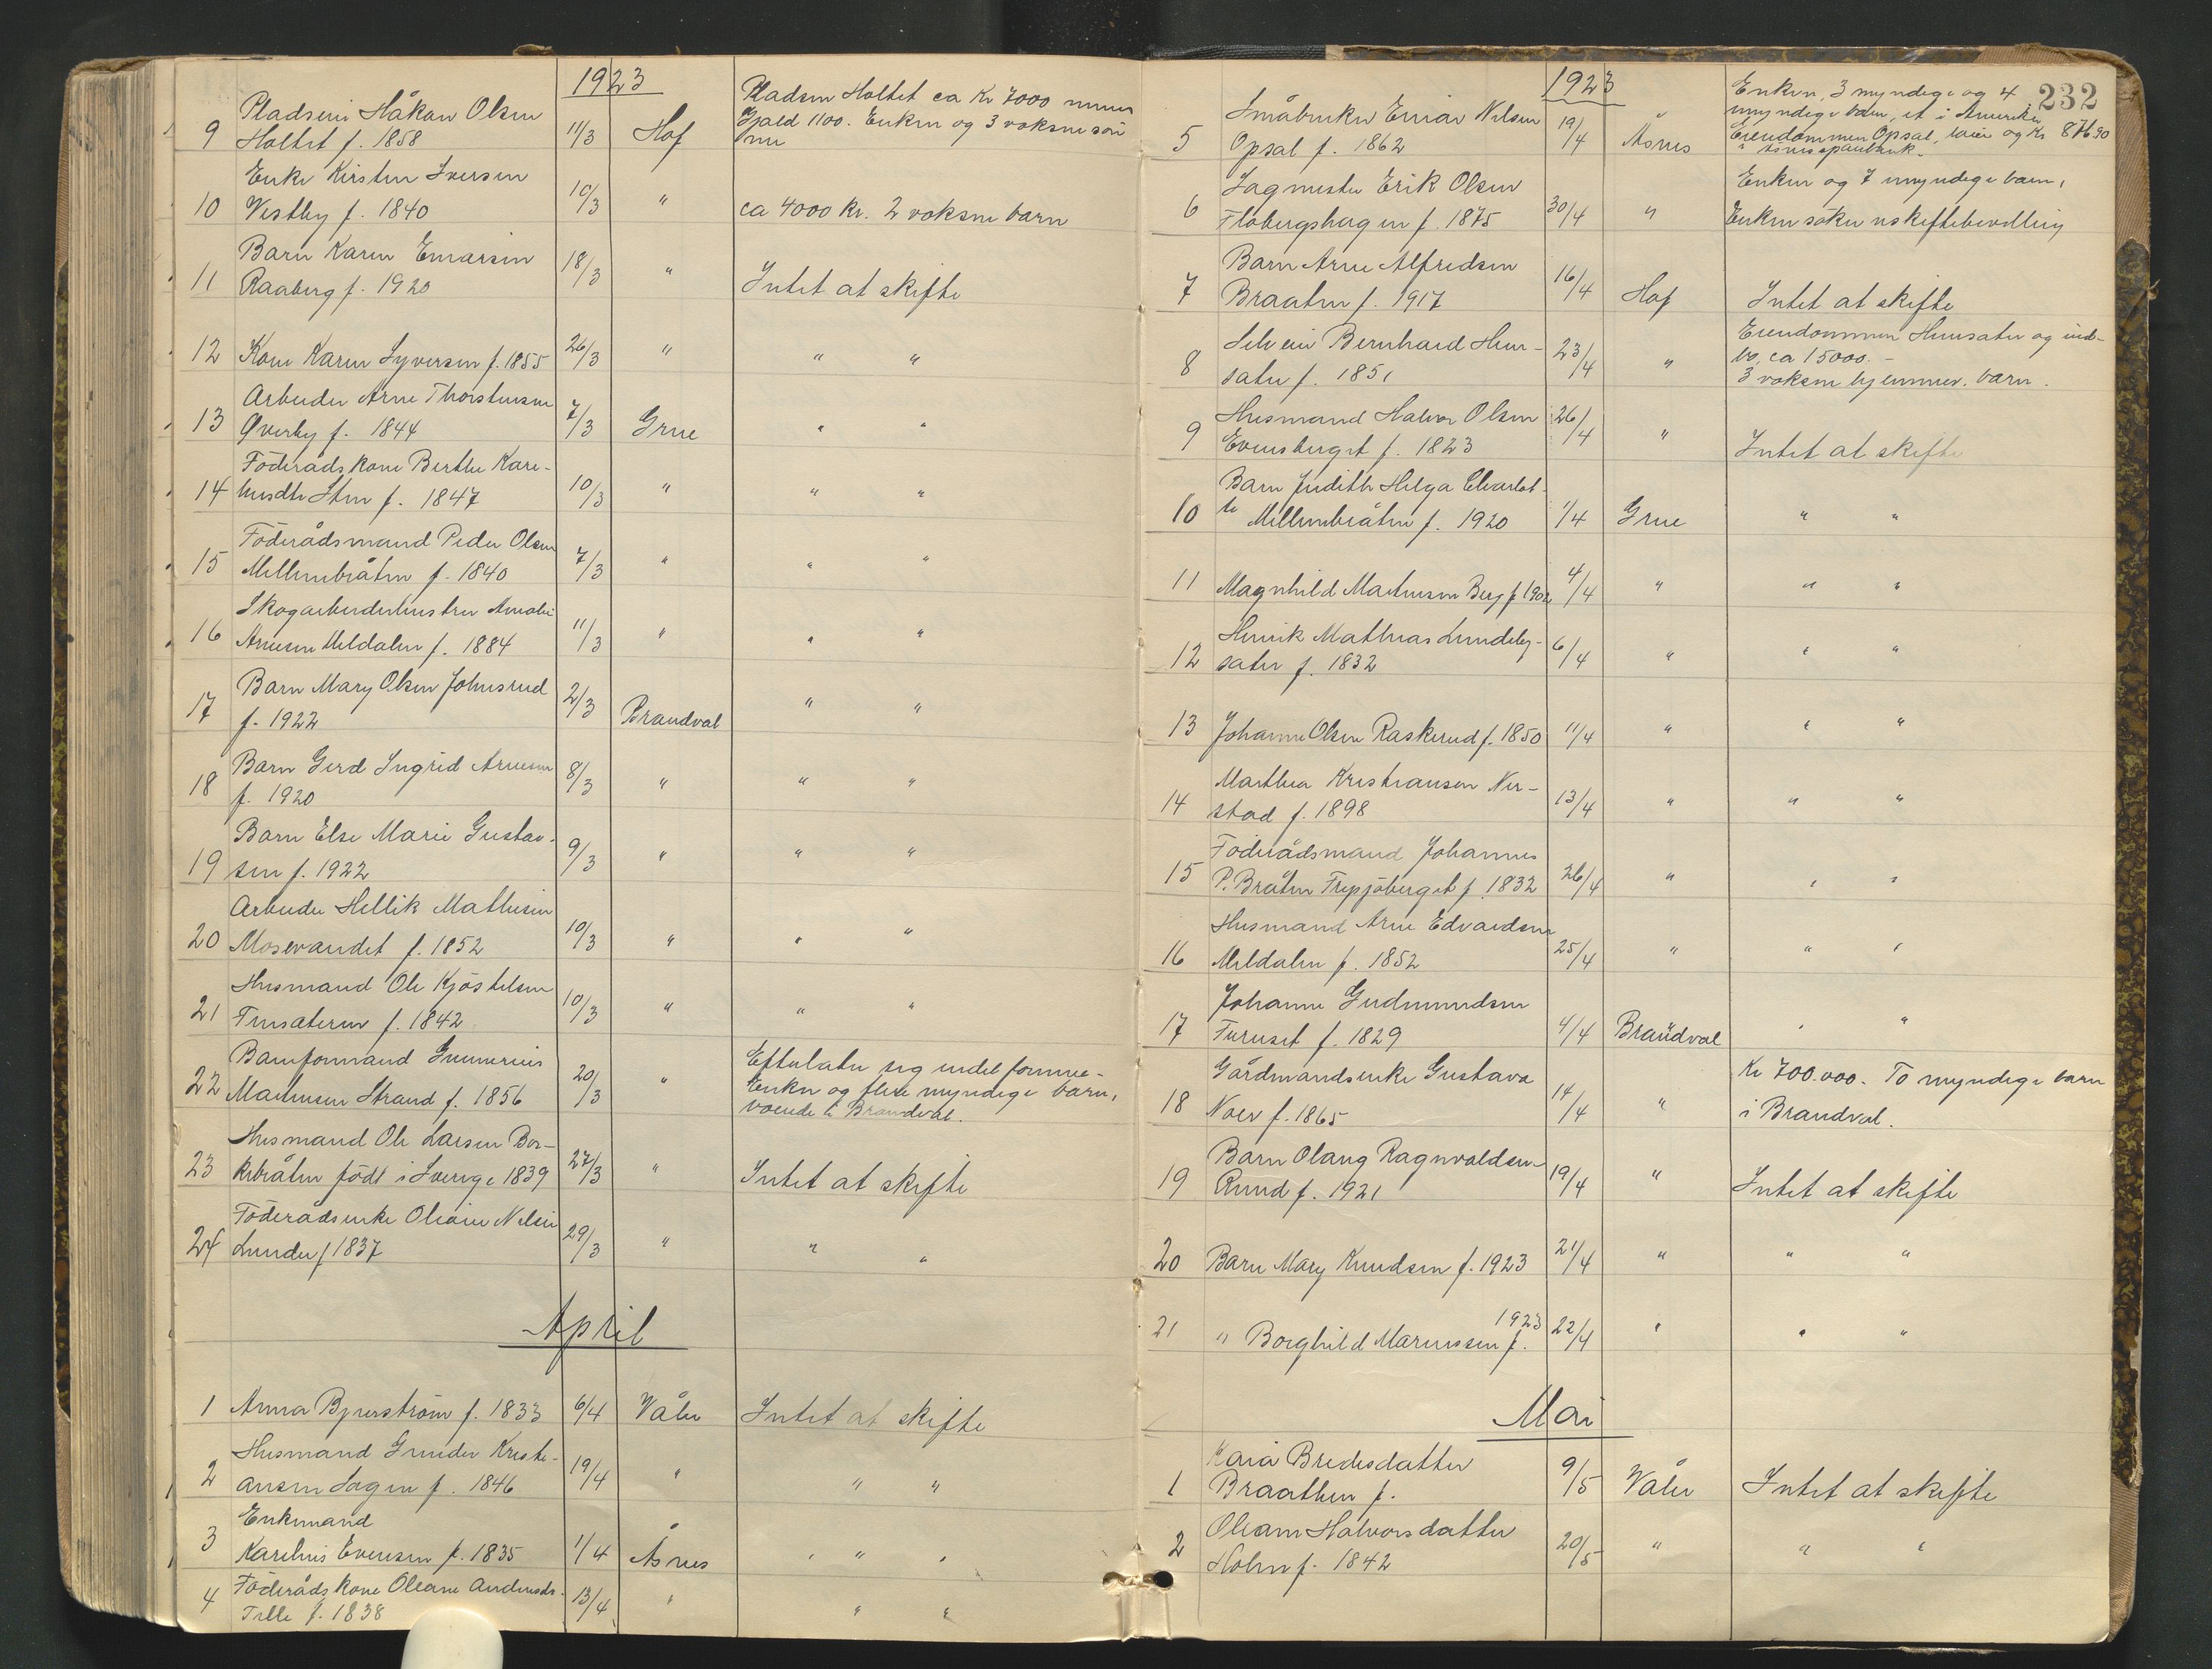 1923
Pladseier Håkon Olsen
9 Holtet f. 1858 11/3 Hof
Pladsen Holtet ca Kr 7000 minus
Gjæld 1100. Enken og 3 voksne søn
ner
Enke Kirsten Iversen
10 Vestby f. 1840 10/3 " ca 4000 kr. 2 voksne barn
Barn Karen Einarsen
11 Raaberg f. 1920 18/3 " Intet at skifte
12 Kone Karen Syversen f. 1855 26/3 " " "
Arbeider Arne Thorstensen
13 Øverby f. 1844 7/3 Grue " "
Föderådskone Berthe Kare-
14 husdtr Sten f. 1847 10/3 " " "
Föderådsmand Peder Olsen
15 Mellembråten f. 1840 7/3 " " "
Skogarbeiderhustru Amalie
16 Arnesen Meldalen f. 1884 11/3 " " "
Barn Mary Olsen Johnsrud
17 f. 1922 2/3 Brandval " "
Barn Gerd Ingrid Arnesen
18 f. 1920 8/3 " " "
Barn Else Marie Gustav-
19 sen f. 1922 9/3 " " "
Arbeider Hellik Mathisen
20 Mosevandet f. 1852 10/3 " " "
Husmand Ole Kjöstelsen
21 f. 1842 10/3 " " "
Baneformand Gunnerius
22 Martinsen Strand f. 1856 20/3 "
Efterlater sig endel formue-
Enken og flere myndige barn,
boende i Brandval.
Husmand Ole Larsen Bor-
23 kebråten född i Sverige 1839 27/3 " Intet at skifte
Föderådsenke Oleane Nilsen
24 Lunder f 1837 29/3 " " "
April
1 Anna Bjurström f. 1833 6/4 Våler Intet at skifte
Husmand Gunder Kristi-
2 ansen Sagen f. 1846 19/4 " " "
Enkemand
3 Karelius Evensen f. 1835 1/4 Åsnes " " "
Föderådskone Oleane Andersdtr.
4 Telle f. 1838 13/4 " " "
1923
232
Småbruker Einar Nilsen
5 Opsal f. 1862 19/4 Åsnes
Enken, 3 myndige og 4
umyndige barn, et i Amerika
Eiendommen Opsal, løsøre og Kr 876.90
i Åsnes sparebank.
Sagmester Erik Olsen
6 Flobergshagen f. 1875 30/4 "
Enken og 7 umyndige barn,
Enken søker uskiftebevilling
Barn Arne Alfredsen
7 Braaten f. 1917 16/4 Hof Intet at skifte
Selveier Bernhard Hun-
8 sæter f. 1851 23/4 "
Eiendommen Hunsæter og ind-
bo, ca 15000.-
3 voksne hjemmev. barn.
Husmand Halvor Olsen
9 Evensberget f. 1823 26/4 " Intet at skifte
Barn Judith Helga Charlot-
10 te Mellembråten f. 1920 1/4 Grue " "
11 Magnhild Martinsen Berg f 1902 4/4 " " "
Henrik Mathias Lundeby-
12 sæter f. 1832 6/4 " " "
13 Johanne Olsen Raskerud f. 1850 11/4 " " "
Marthea Kristiansen Ner-
14 stad f. 1898 13/4 " " "
Föderådsmand Johannes
15 P. Bråten f. 1832 26/4 " " "
Husmand Arne Edvardsen
16 Meldalen f. 1852 25/4 " " "
Johanne Gudmundsen
17 Furuset f. 1829 4/4 Brandval " "
Gårdmandsenke Gustava
18 Noer f. 1865 14/4 "
Kr 700.000. To myndige barn
i Brandval.
Barn Olaug Ragnvaldsen
19 Rund f. 1921 19/4 " Intet at skifte
20 Barn Mary Knudsen f. 1923 21/4 " " "
1923
21 " Borghild Mariussen f. 22/4 " " "
Mai
Kaia Bredesdatter
1 Braathen f. 9/5 Våler Intet at skifte
Oleane Halvorsdatter
2 Holen f. 1842 20/5 " " "